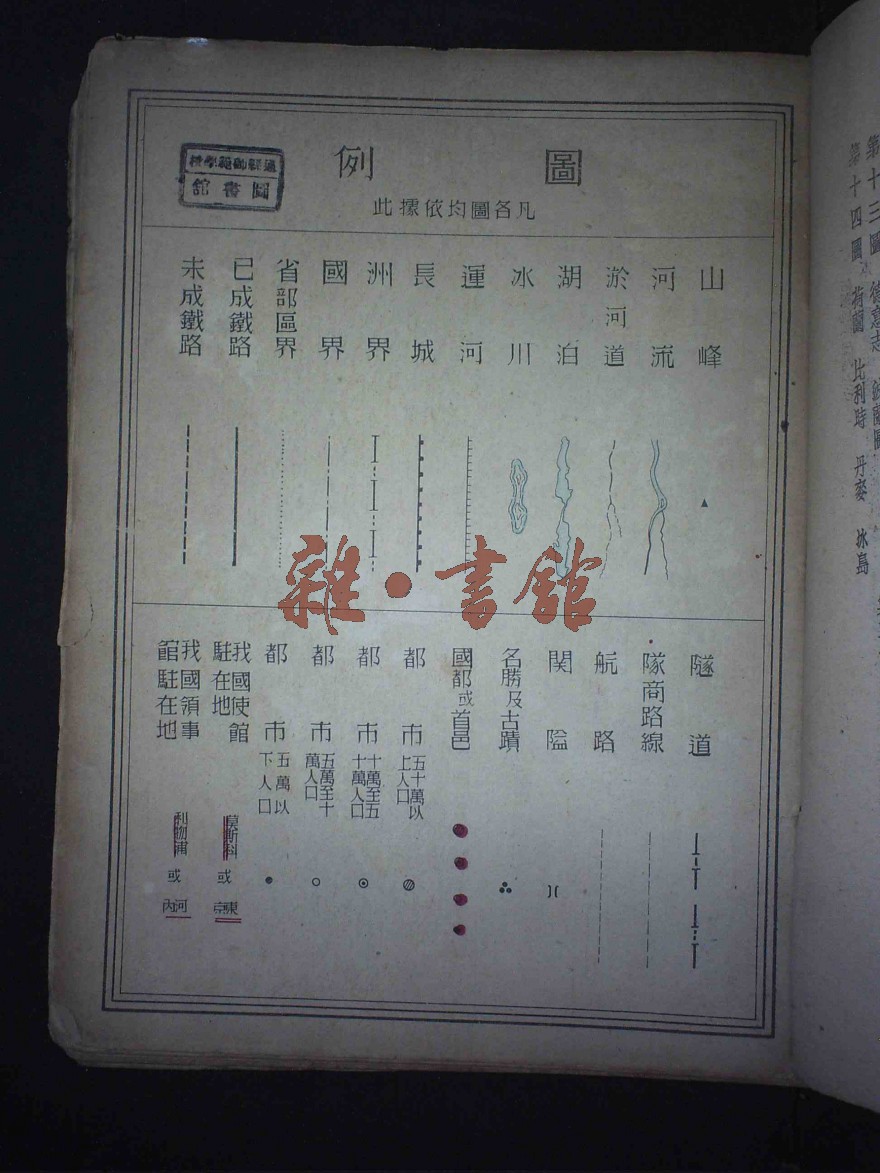 圖例
凡各圖均依據此
圖書館
山峰
河流
淤河道
湖泊
冰川
運河
長城
洲界
國界
省部區界
已成鐵路
未成鐵路
隧道
隊商路線
航路
関隘
名勝及古蹟
國都或首邑
都市五十萬以上人口
都市十萬至五十萬人口
都市五萬至十萬人口
都市五萬以下人口
我國使館駐在地
莫斯科或東京
我國領事館駐在地
利物浦或河內
雜·書館
第十三圖 德意志 波蘭圖
第十四圖 荷蘭 比利時 丹麥 冰島